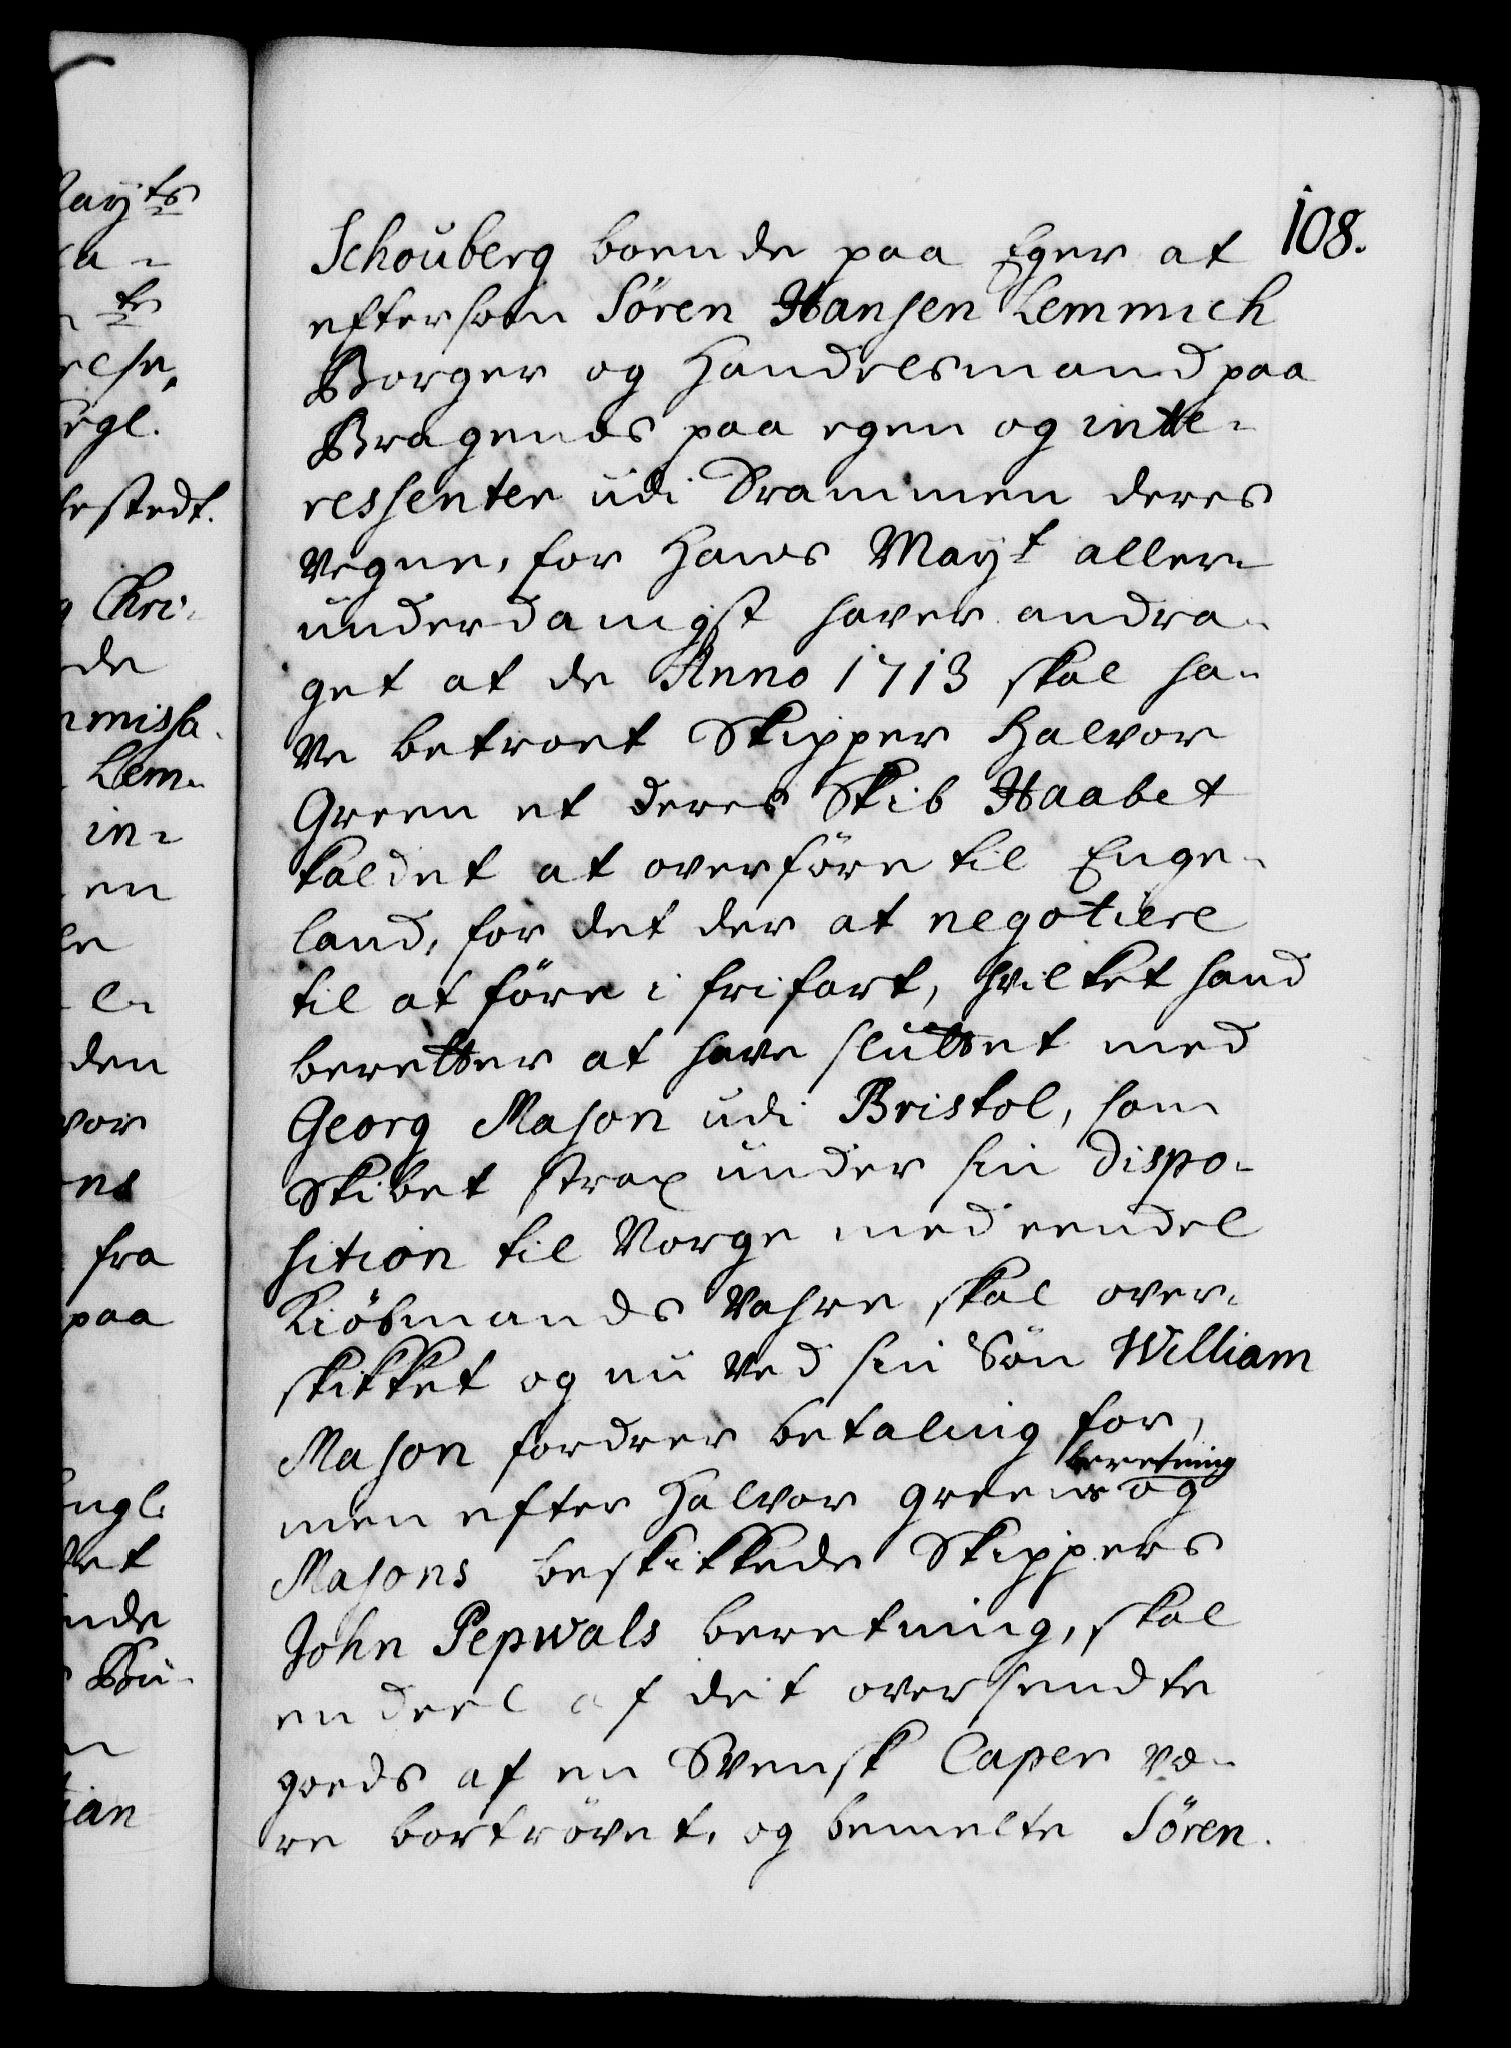 108.
Schouberg boende paa Eger at
eftersom Sören Hansen Lemmich
Borger og Handelsmand paa
Bragenes paa egen og inte-
ressenter udi Drammen deres
Vegne, for Hans Mayt aller-
underdanigst haver andra-
get at de Anno 1713 skal ha-
ve betroet Skipper Halvor
Green et deres Skib Haabet
kaldet at overföre til Enge-
land, for det der at negotiere
til at före i frifart, hvilket hand
beretter at have sluttet med
Georg Mason udi Bristol, som
Skibet strax under sin dispo-
sition til Norge med eendel
Kiöbmands Vahre skal over-
skikket og nu ved sin Sön William
Mason fordrer betaling for,
men efter Halvor Greens beretning og
Masons beskikkede Skippers
John Pepwals beretning, skal
en deel af det oversendte
goeds af en Svensk Caper væ-
re bortrövet, og bemelte Sören